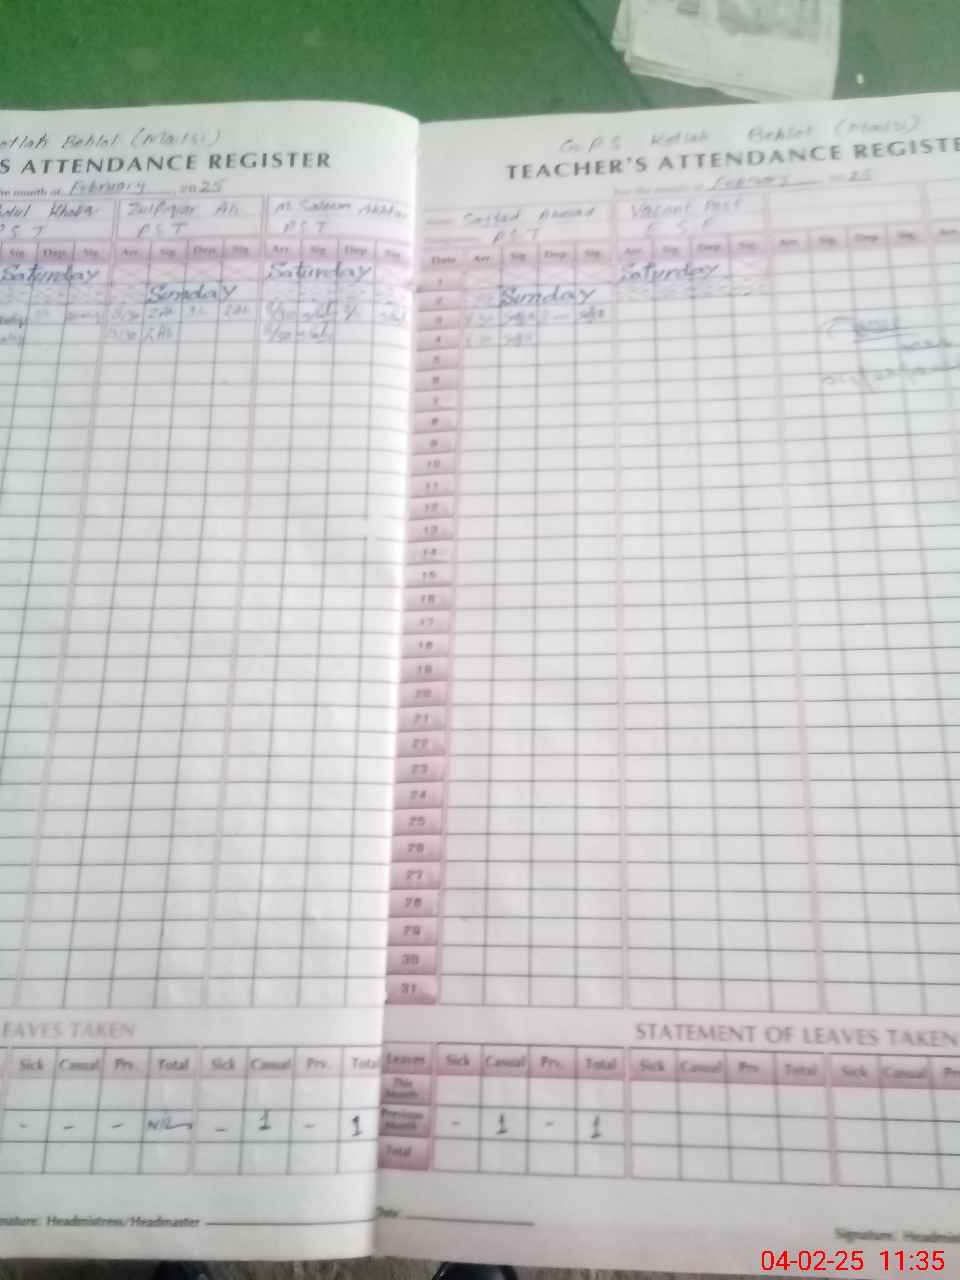 Behlol (Mailsi)
S ATTENDANCE REGISTER
the month of February 2025
Khaliq Zulfiqar Ali M. Saleem Akhtar
P S T P S T P S T
Sig. Dep. Sig. Arr. Sig. Dep. Sig. Arr. Sig. Dep. Sig.
Saturday Saturday
Sunday
LEAVES TAKEN
Sick Casual Prv. Total Sick Casual Prv. Total
- - - NIL - 1 - 1
Signature: Headmistress/Headmaster
G.P.S Kotlah Behlol (Mailsi)
TEACHER'S ATTENDANCE REGISTE
For the month of February 2025
Sajjad Ahmad Vacant Post
P.S.T
Date Arr. Sig. Dep. Sig. Arr. Sig. Dep. Sig. Arr. Sig. Dep. Sig. Arr.
1 Saturday
2 Sunday
3
4
5
6
7
8
9
10
11
12
13
14
15
16
17
18
19
20
21
22
23
24
25
26
27
28
29
30
31
STATEMENT OF LEAVES TAKEN
Leaves Sick Casual Prv. Total Sick Casual Prv. Total Sick Casual Pr
This Month
Previous Month - 1 - 1
Total
Date:
Signature: Headmis
04-02-25 11:35